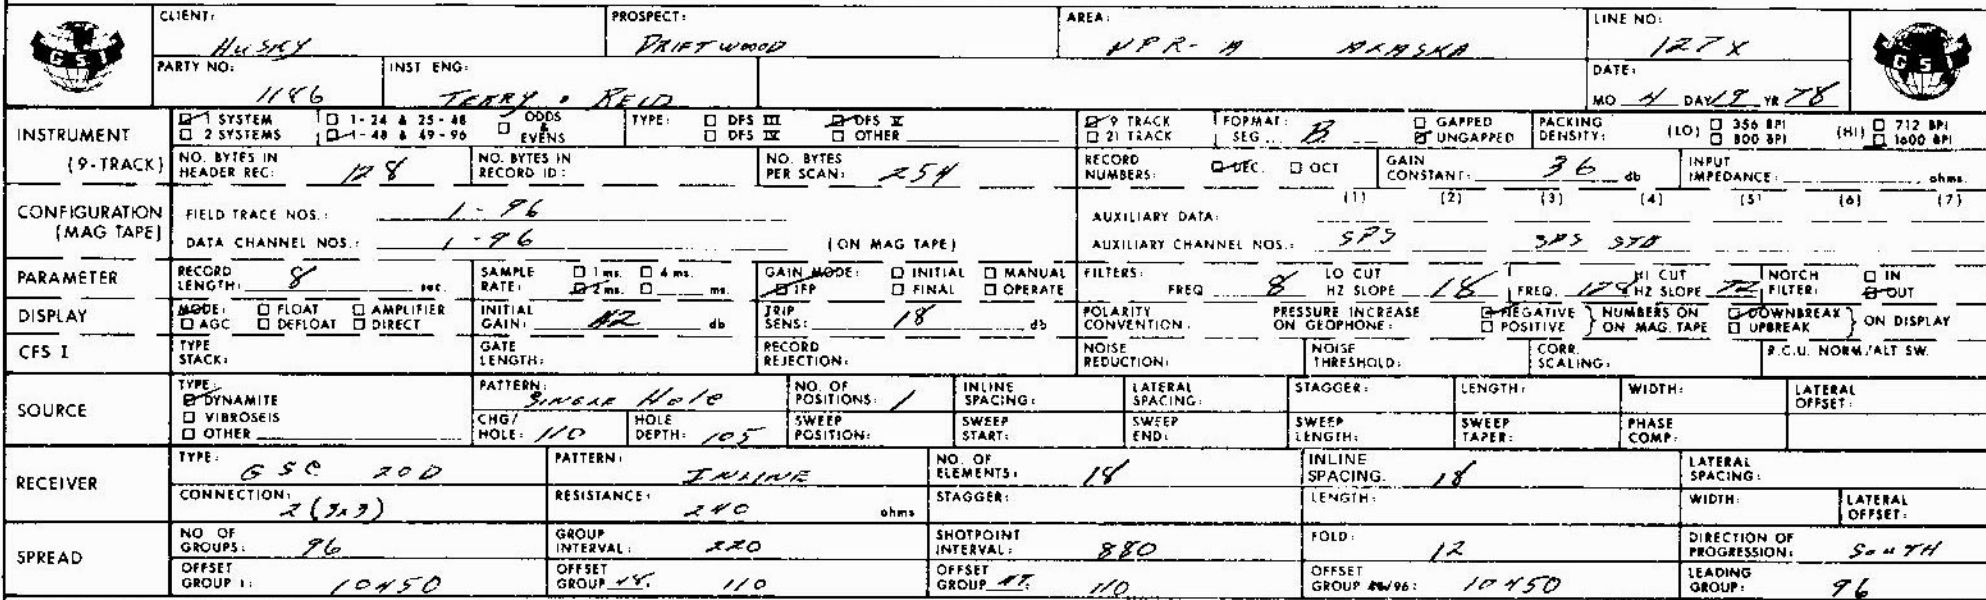 CLIENT: HUSKY PROSPECT: DRIFTWOOD AREA: NPR-A ALASKA LINE NO: 127X
GSI
GSI
PARTY NO: 1186 INST ENG: TERRY • REID DATE: MO 4 DAY 19 YR 78
INSTRUMENT (9-TRACK)
☑ 1 SYSTEM ☐ 1-24 & 25-48 ☐ ODDS & EVENS TYPE: ☐ DFS III ☑ DFS V ☑ 9 TRACK FORMAT: SEG B ☐ GAPPED PACKING DENSITY: (LO) ☐ 356 BPI (HI) ☐ 712 BPI
☐ 2 SYSTEMS ☑ 1-48 & 49-96 ☐ DFS IV ☐ OTHER ☐ 21 TRACK ☑ UNGAPPED ☐ 800 BPI ☐ 1600 BPI
NO. BYTES IN HEADER REC: 128 NO. BYTES IN RECORD ID: NO. BYTES PER SCAN: 254 RECORD NUMBERS: ☑ DEC. ☐ OCT GAIN CONSTANT: 36 db INPUT IMPEDANCE: ohms.
CONFIGURATION (MAG TAPE)
(1) (2) (3) (4) (5) (6) (7)
FIELD TRACE NOS.: 1-96 AUXILIARY DATA:
DATA CHANNEL NOS.: 1-96 (ON MAG TAPE) AUXILIARY CHANNEL NOS.: SPS SPS STB
PARAMETER RECORD LENGTH: 8 sec. SAMPLE RATE: ☐ 1 ms. ☐ 4 ms. ☑ 2 ms. ☐ ms. GAIN MODE: ☐ INITIAL ☐ MANUAL ☑ IFP ☐ FINAL ☐ OPERATE FILTERS: LO CUT FREQ 8 HZ SLOPE 18 HI CUT FREQ. 128 HZ SLOPE 72 NOTCH FILTER: ☐ IN ☑ OUT
DISPLAY MODE: ☐ FLOAT ☐ AMPLIFIER ☐ AGC ☐ DEFLOAT ☐ DIRECT INITIAL GAIN: 42 db TRIP SENS: 18 db POLARITY CONVENTION: PRESSURE INCREASE ON GEOPHONE: ☑ NEGATIVE ☐ POSITIVE } NUMBERS ON MAG. TAPE ☑ DOWNBREAK ☐ UPBREAK } ON DISPLAY
CFS I TYPE STACK: GATE LENGTH: RECORD REJECTION: NOISE REDUCTION: NOISE THRESHOLD: CORR. SCALING: R.C.U. NORM/ALT SW.
SOURCE
TYPE: ☑ DYNAMITE ☐ VIBROSEIS ☐ OTHER PATTERN: SINGLE HOLE NO. OF POSITIONS: 1 INLINE SPACING: LATERAL SPACING: STAGGER: LENGTH: WIDTH: LATERAL OFFSET:
CHG/HOLE: 110 HOLE DEPTH: 105 SWEEP POSITION: SWEEP START: SWEEP END: SWEEP LENGTH: SWEEP TAPER: PHASE COMP:
RECEIVER
TYPE: GSC 20D PATTERN: INLINE NO. OF ELEMENTS: 18 INLINE SPACING. 18 LATERAL SPACING:
CONNECTION: 2 (3x3) RESISTANCE: 240 ohms STAGGER: LENGTH: WIDTH: LATERAL OFFSET:
SPREAD
NO OF GROUPS: 96 GROUP INTERVAL: 220 SHOTPOINT INTERVAL: 880 FOLD: 12 DIRECTION OF PROGRESSION: SOUTH
OFFSET GROUP 1: 10450 OFFSET GROUP 48. 110 OFFSET GROUP 49. 110 OFFSET GROUP 48/96: 10450 LEADING GROUP: 96